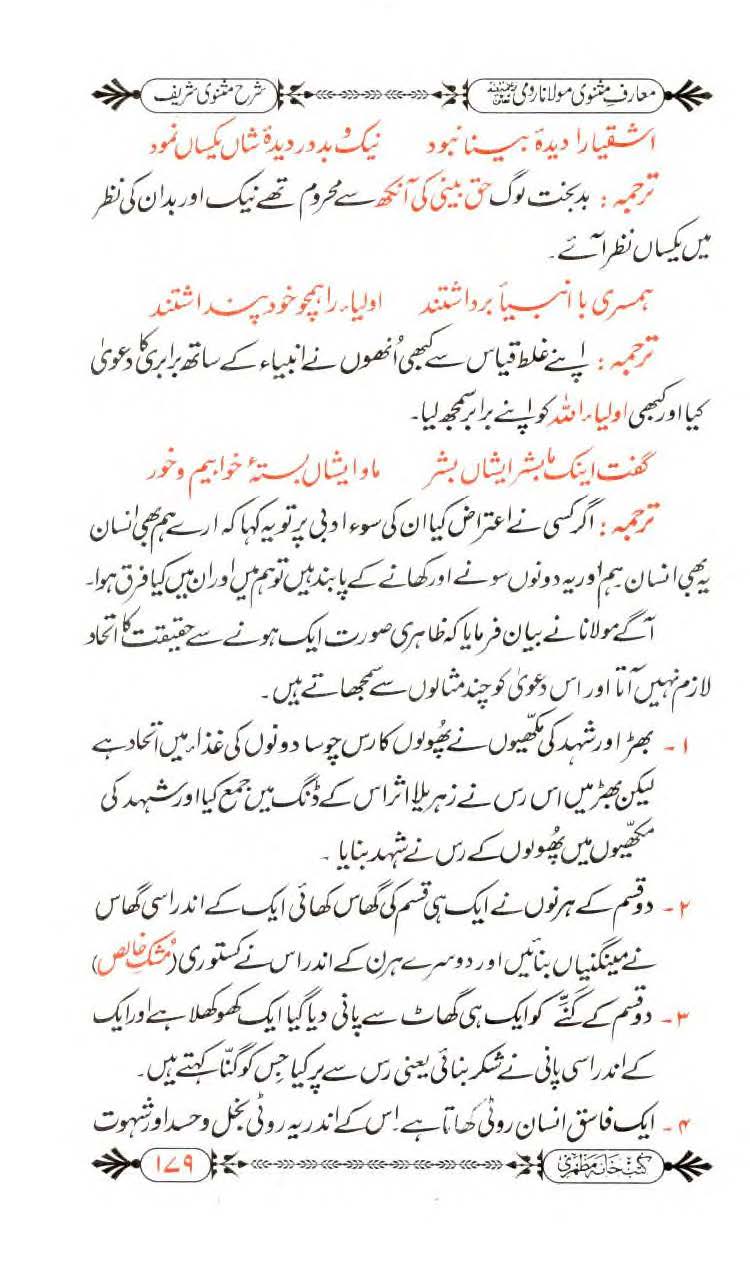 معارفِ مثنوی مولانا رومی رحمۃ اللہ علیہ
شرح مثنوی شریف
اشقیارا دیدۂ بینا نبود نیک و بد در دیدۂ شاں یکساں نمود
ترجمہ: بدبخت لوگ حق بینی کی آنکھ سے محروم تھے نیک اور بد ان کی نظر
میں یکساں نظر آئے۔
ہمسری با انبیأ برداشتند اولیاء را ہمچو خود پنداشتند
ترجمہ: اپنے غلط قیاس سے کبھی اُنھوں نے انبیاء کے ساتھ برابری کا دعویٰ
کیا اور کبھی اولیاء اللہ کو اپنے برابر سمجھ لیا۔
گفت اینک ما بشر ایشاں بشر ما و ایشاں بستۂ خوابیم و خور
ترجمہ: اگر کسی نے اعتراض کیا ان کی سوء ادبی پر تو یہ کہا کہ ارے ہم بھی انسان
یہ بھی انسان ہم اور یہ دونوں سونے اور کھانے کے پابند ہیں تو ہم میں اور ان میں کیا فرق ہوا۔
آگے مولانا نے بیان فرمایا کہ ظاہری صورت ایک ہونے سے حقیقت کا اتحاد
لازم نہیں آتا اور اس دعویٰ کو چند مثالوں سے سمجھاتے ہیں۔
۱۔ بھڑ اور شہد کی مکھّیوں نے پھُولوں کا رس چوسا دونوں کی غذاء میں اتحاد ہے
لیکن بھڑ میں اس رس نے زہریلا اثر اس کے ڈنگ میں جمع کیا اور شہد کی
مکھّیوں میں پھُولوں کے رس نے شہد بنایا ۔
۲۔ دو قسم کے ہرنوں نے ایک ہی قسم کی گھاس کھائی ایک کے اندر اسی گھاس
نے مینگنیاں بنائیں اور دوسرے ہرن کے اندر اس نے کستوری (مُشک خالص)
۳۔ دو قسم کے گنّے کو ایک ہی گھاٹ سے پانی دیا گیا ایک کھوکھلا ہے اور ایک
کے اندر اسی پانی نے شکر بنائی یعنی رس سے پر کیا جس کو گنّا کہتے ہیں۔
۴۔ ایک فاسق انسان روٹی کھاتا ہے اس کے اندر یہ روٹی بخل و حسد اور شہوت
کتب خانہ مظہری
۱۷۹